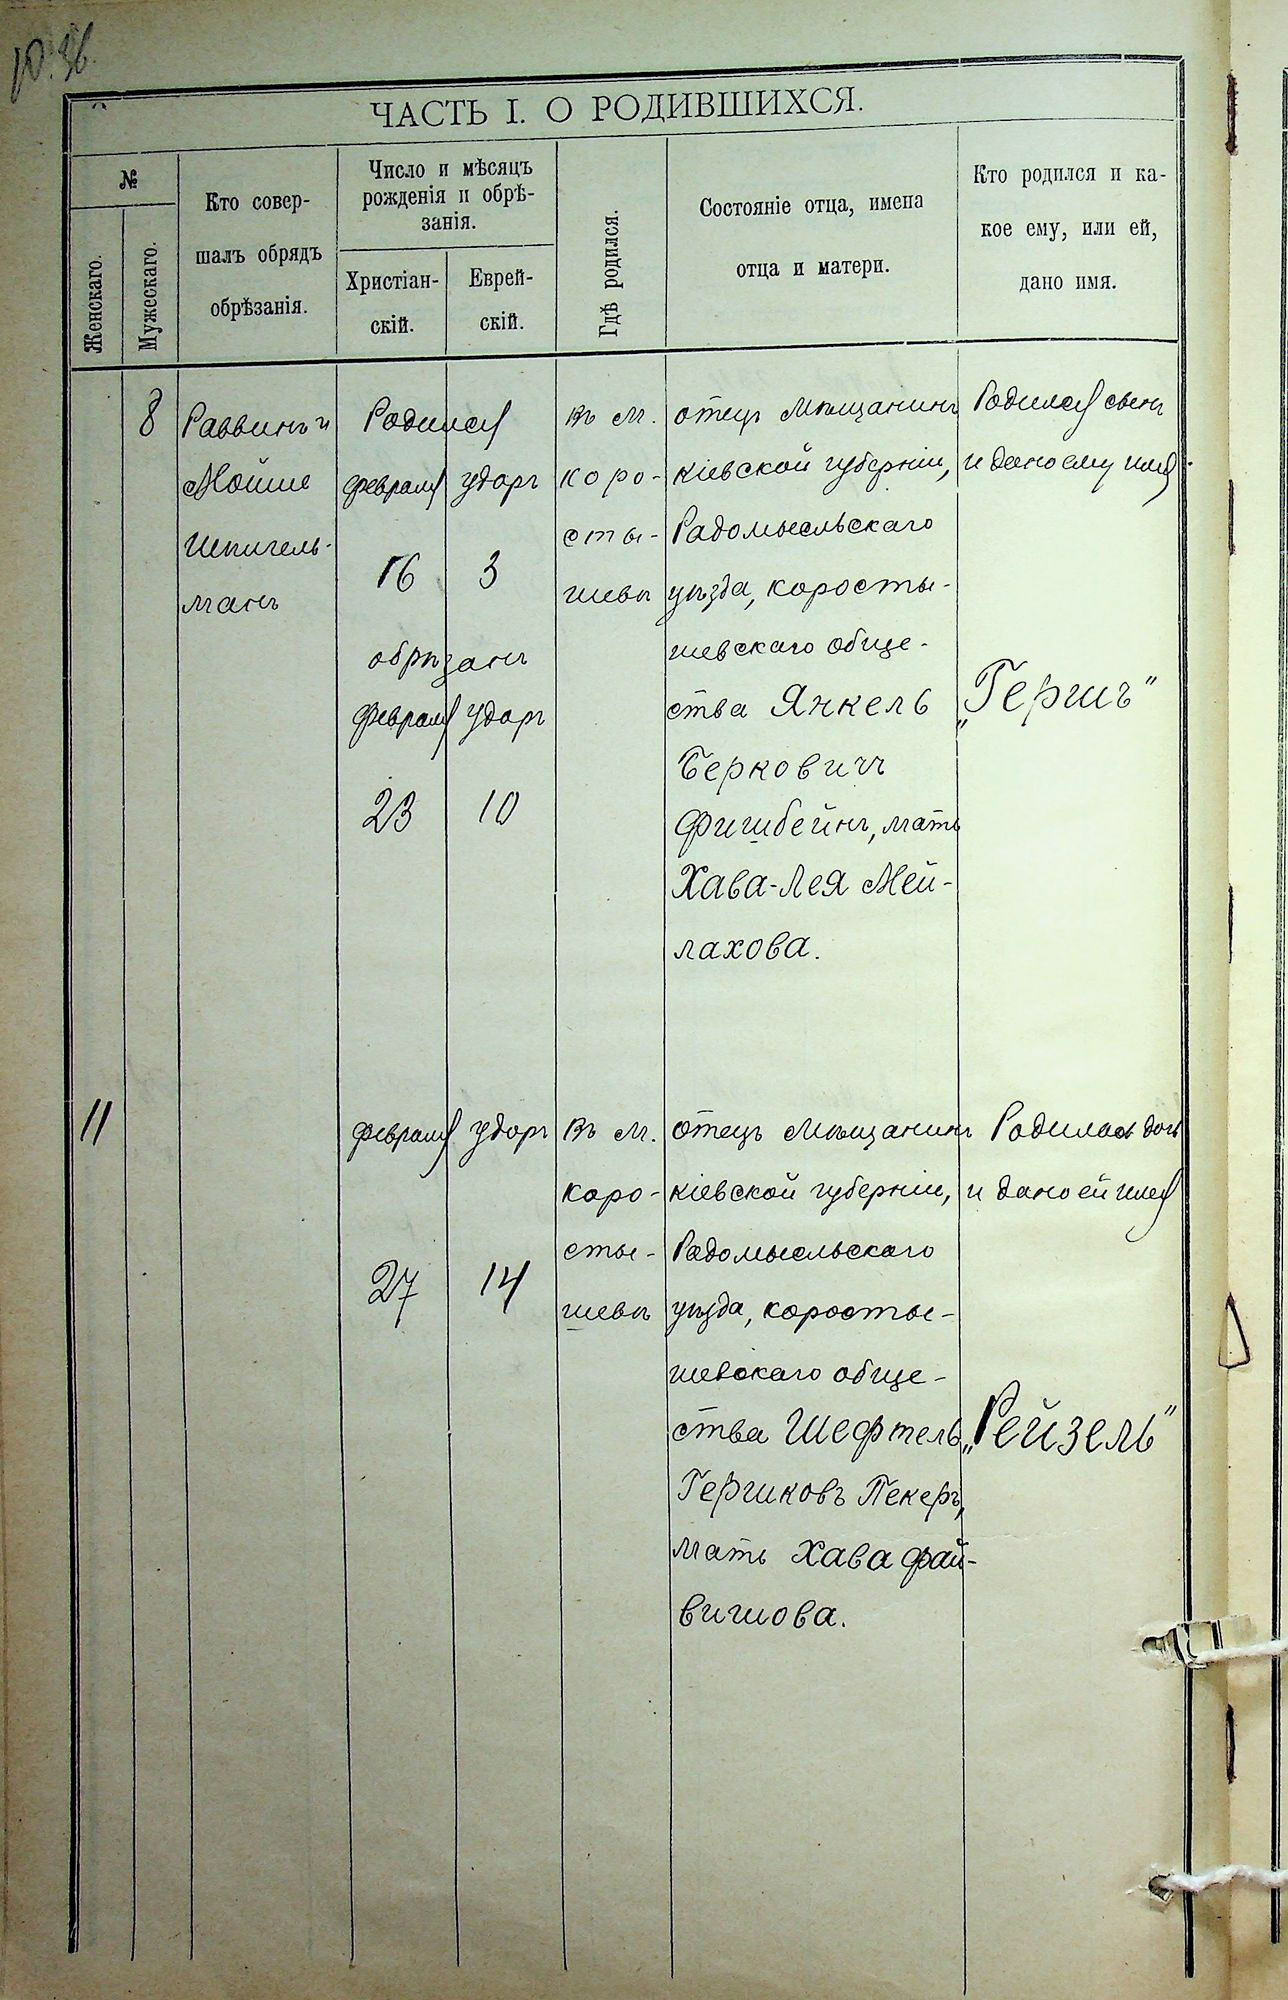 ЧАСТЬ I. О РОДИВШИХСЯ.
№
Женскаго.
Мужескаго.
Кто совер-
шалъ обрядъ
обрѣзанія.
Число и мѣсяцъ
рожденія и обрѣ-
занія.
Христіан-
скій.
Еврей-
скій.
Гдѣ родился.
Состояніе отца, имена
отца и матери.
Кто родился и ка-
кое ему, или ей,
дано имя.
8
Раввинъ и
Мойше
Шпигель-
манъ
Родился
февраля
16
обрѣзанъ
февраля
23
удоръ
3
удоръ
10
въ м.
коро-
сты-
шевѣ
отецъ мѣщанинъ
кіевской губерніи,
Радомысльскаго
уѣзда, коросты-
шевскаго обще-
ства Янкель
Берковичъ
Фишбейнъ, мать
Хава-Лея Мей-
лахова.
Родился сынъ
и дано ему имя
„Гершъ“
11
февраля
27
удоръ
14
въ м.
коро-
сты-
шевѣ
отецъ мѣщанинъ
кіевской губерніи,
Радомысльскаго
уѣзда, коросты-
шевскаго обще-
ства Шефтель
Гершковъ Пекеръ,
мать Хава Фай-
вишова.
Родилась дочь
и дано ей имя
„Рейзель“